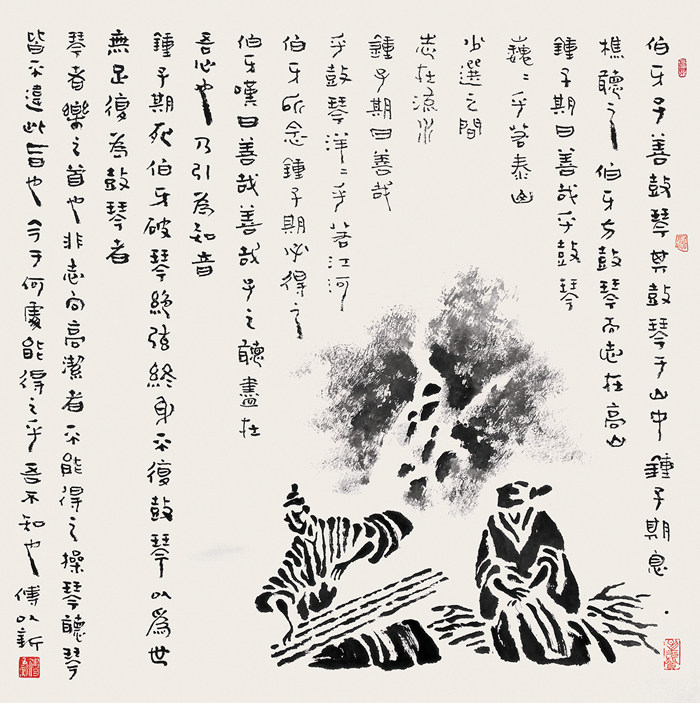 伯牙子善鼓琴其鼓琴于山中鍾子期息
樵聽之伯牙方鼓琴而志在高山
鍾子期曰善哉乎鼓琴
巍〻乎若泰山
少選之間
志在流水
鍾子期曰善哉
乎鼓琴洋〻乎若江河
伯牙所念鍾子期必得之
伯牙嘆曰善哉善哉子之聽盡在
吾心也乃引為知音
鍾子期死伯牙破琴絶弦終身不復鼓琴以為世
無足復為鼓琴者
琴者樂之首也非志向高潔者不能得之操琴聽琴
皆不違此旨也今于何處能得之乎吾不知也傅以新